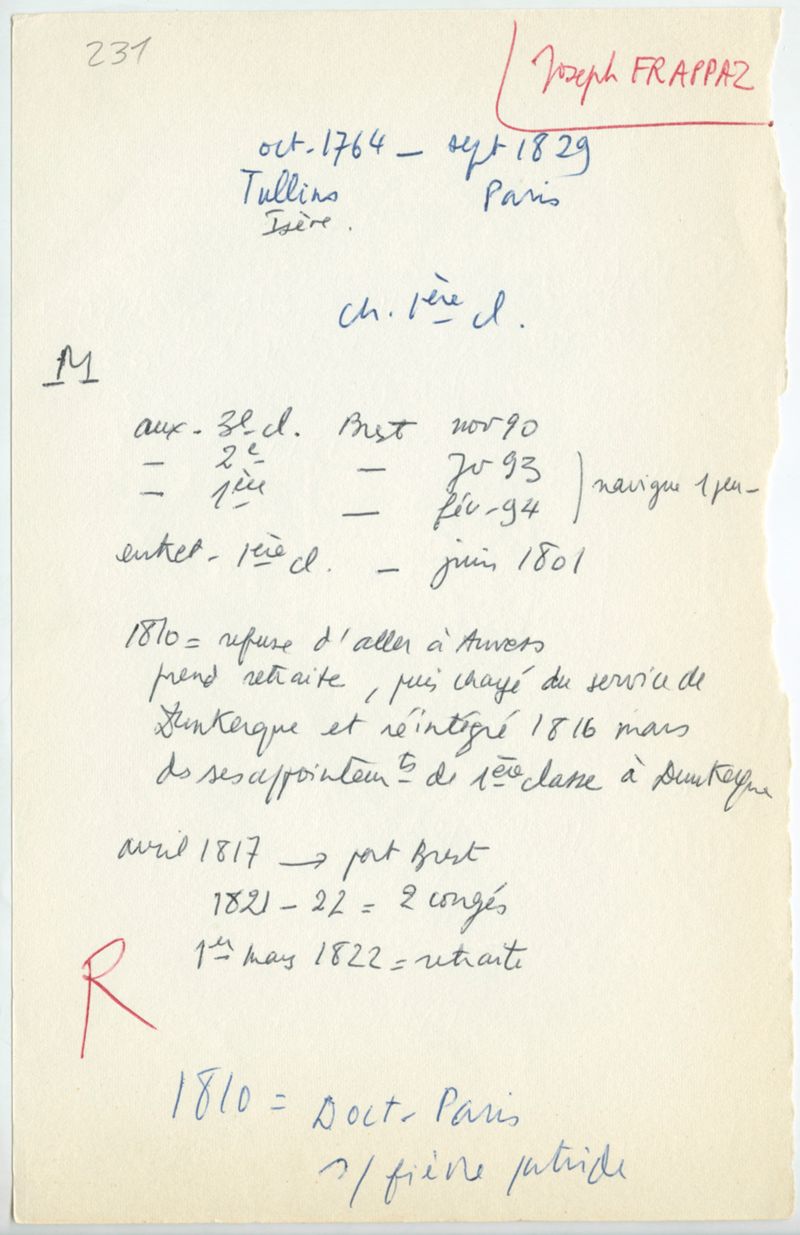 231
Joseph FRAPPAZ
oct. 1764 — sept 1829
Tullins Paris
Isère.
ch. 1ère cl.
M
aux. 3e cl. Brest nov 90
— 2e — Jv 93
— 1ère — fév. 94
navigue 1 peu
entret. 1ère cl. — juin 1801
1810 = refuse d'aller à Anvers
prend retraite, puis chargé du service de
Dunkerque et réintégré 1816 mars
ds ses appointemts de 1ère classe à Dunkerque
avril 1817 → port Brest
1821 - 22 = 2 congés
1er mars 1822 = retraite
R
1810 = Doct. Paris
s/ fièvre putride